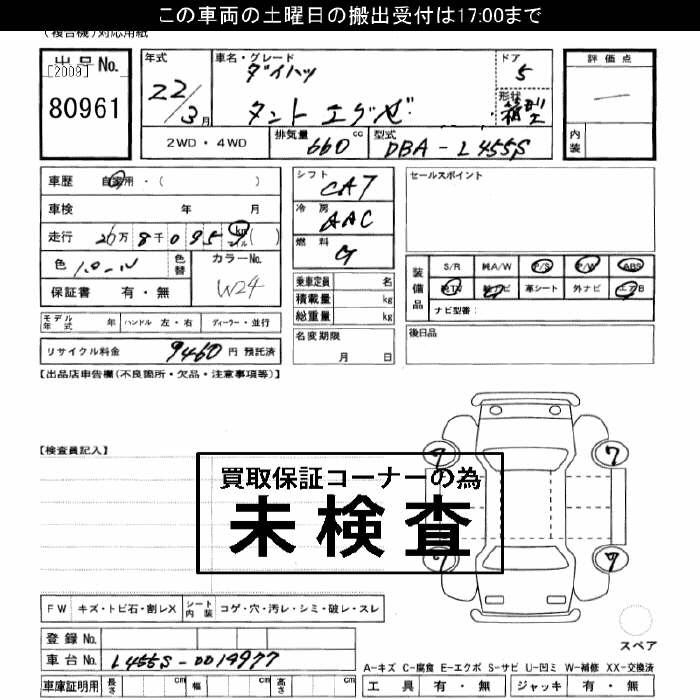 この車両の土曜日の搬出受付は17:00まで
(複合機)対応用紙
出品No.
[2009]
80961
年式
22/3月
車名・グレード
ダイハツ
タント エグゼ
ドア
5
形状
箱型
評価点
—
内装
2WD・4WD
排気量 660 cc
型式 DBA-L455S
車歴 自家用・( )
車検 年 月
走行 26万8千095 km マイル ( )
色 パール
色替
カラーNo.
W24
保証書 有・無
シフト
CAT
冷房
AAC
燃料
G
乗車定員 名
積載量 kg
総重量 kg
セールスポイント
装備品
S/R 純A/W P/S P/W ABS
純TV 純ナビ 革シート 外ナビ エアB
ナビ型番:
モデル年式 年 ハンドル 左・右 ディーラー・並行
名変期限
月 日
後日品
リサイクル料金 9460円 預託済
【出品店申告欄(不良箇所・欠品・注意事項等)】
【検査員記入】
買取保証コーナーの為
未検査
7
7
7
7
FW キズ・トビ石・割レX
シート内装 コゲ・穴・汚レ・シミ・破レ・スレ
スペア
登録No.
車台No. L455S-0014977
A-キズ C-腐食 E-エクボ S-サビ U-凹ミ W-補修 XX-交換済
車庫証明用 長さ cm 幅 cm 高さ cm
工具 有・無 ジャッキ 有・無